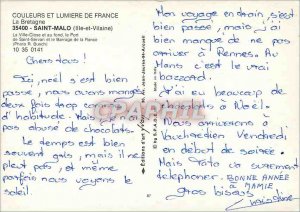 COULEURS ET LUMIERE DE FRANCE
La Bretagne
35400 - SAINT-MALO (Ille-et-Vilaine)
La Ville-Close et au fond le Port
de Saint-Servan et le Barrage de la Rance
(Photo R. Buschi)
10 35 0141
Chers tous!
Ici, noël s'est bien
passé, nous avons mangé
deux fois trop comme
d'habitude. Mais je n'ai
pas abusé de chocolats.
Le temps est bien
souvent gris, mais il ne
pleut pas, et même
parfois nous voyons le
soleil.
87
Mon voyage en train, s'est
bien passé, mais j'ai
bien manqué de ne pas
arriver à Rennes. Au
Mans c'est le vrai
bazard.
J'ai eu beaucoup de
à Noël.
Nous arriverons à
Vendredi
en début de soirée.
Mais Tata va surement
téléphoner. BONNE ANNÉE
gros bisous À MAMIE